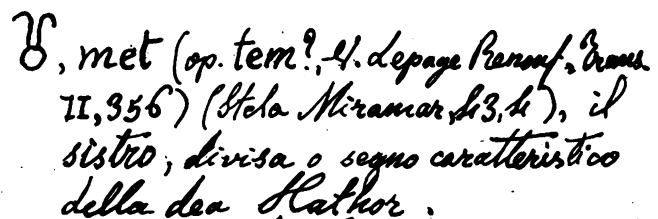 , met (op. tem?, V. Lepage Renouf, Trans.
II, 356) (Stela Miramar, 43, 4), il
sistro, divisa o segno caratteristico
della dea Hathor.